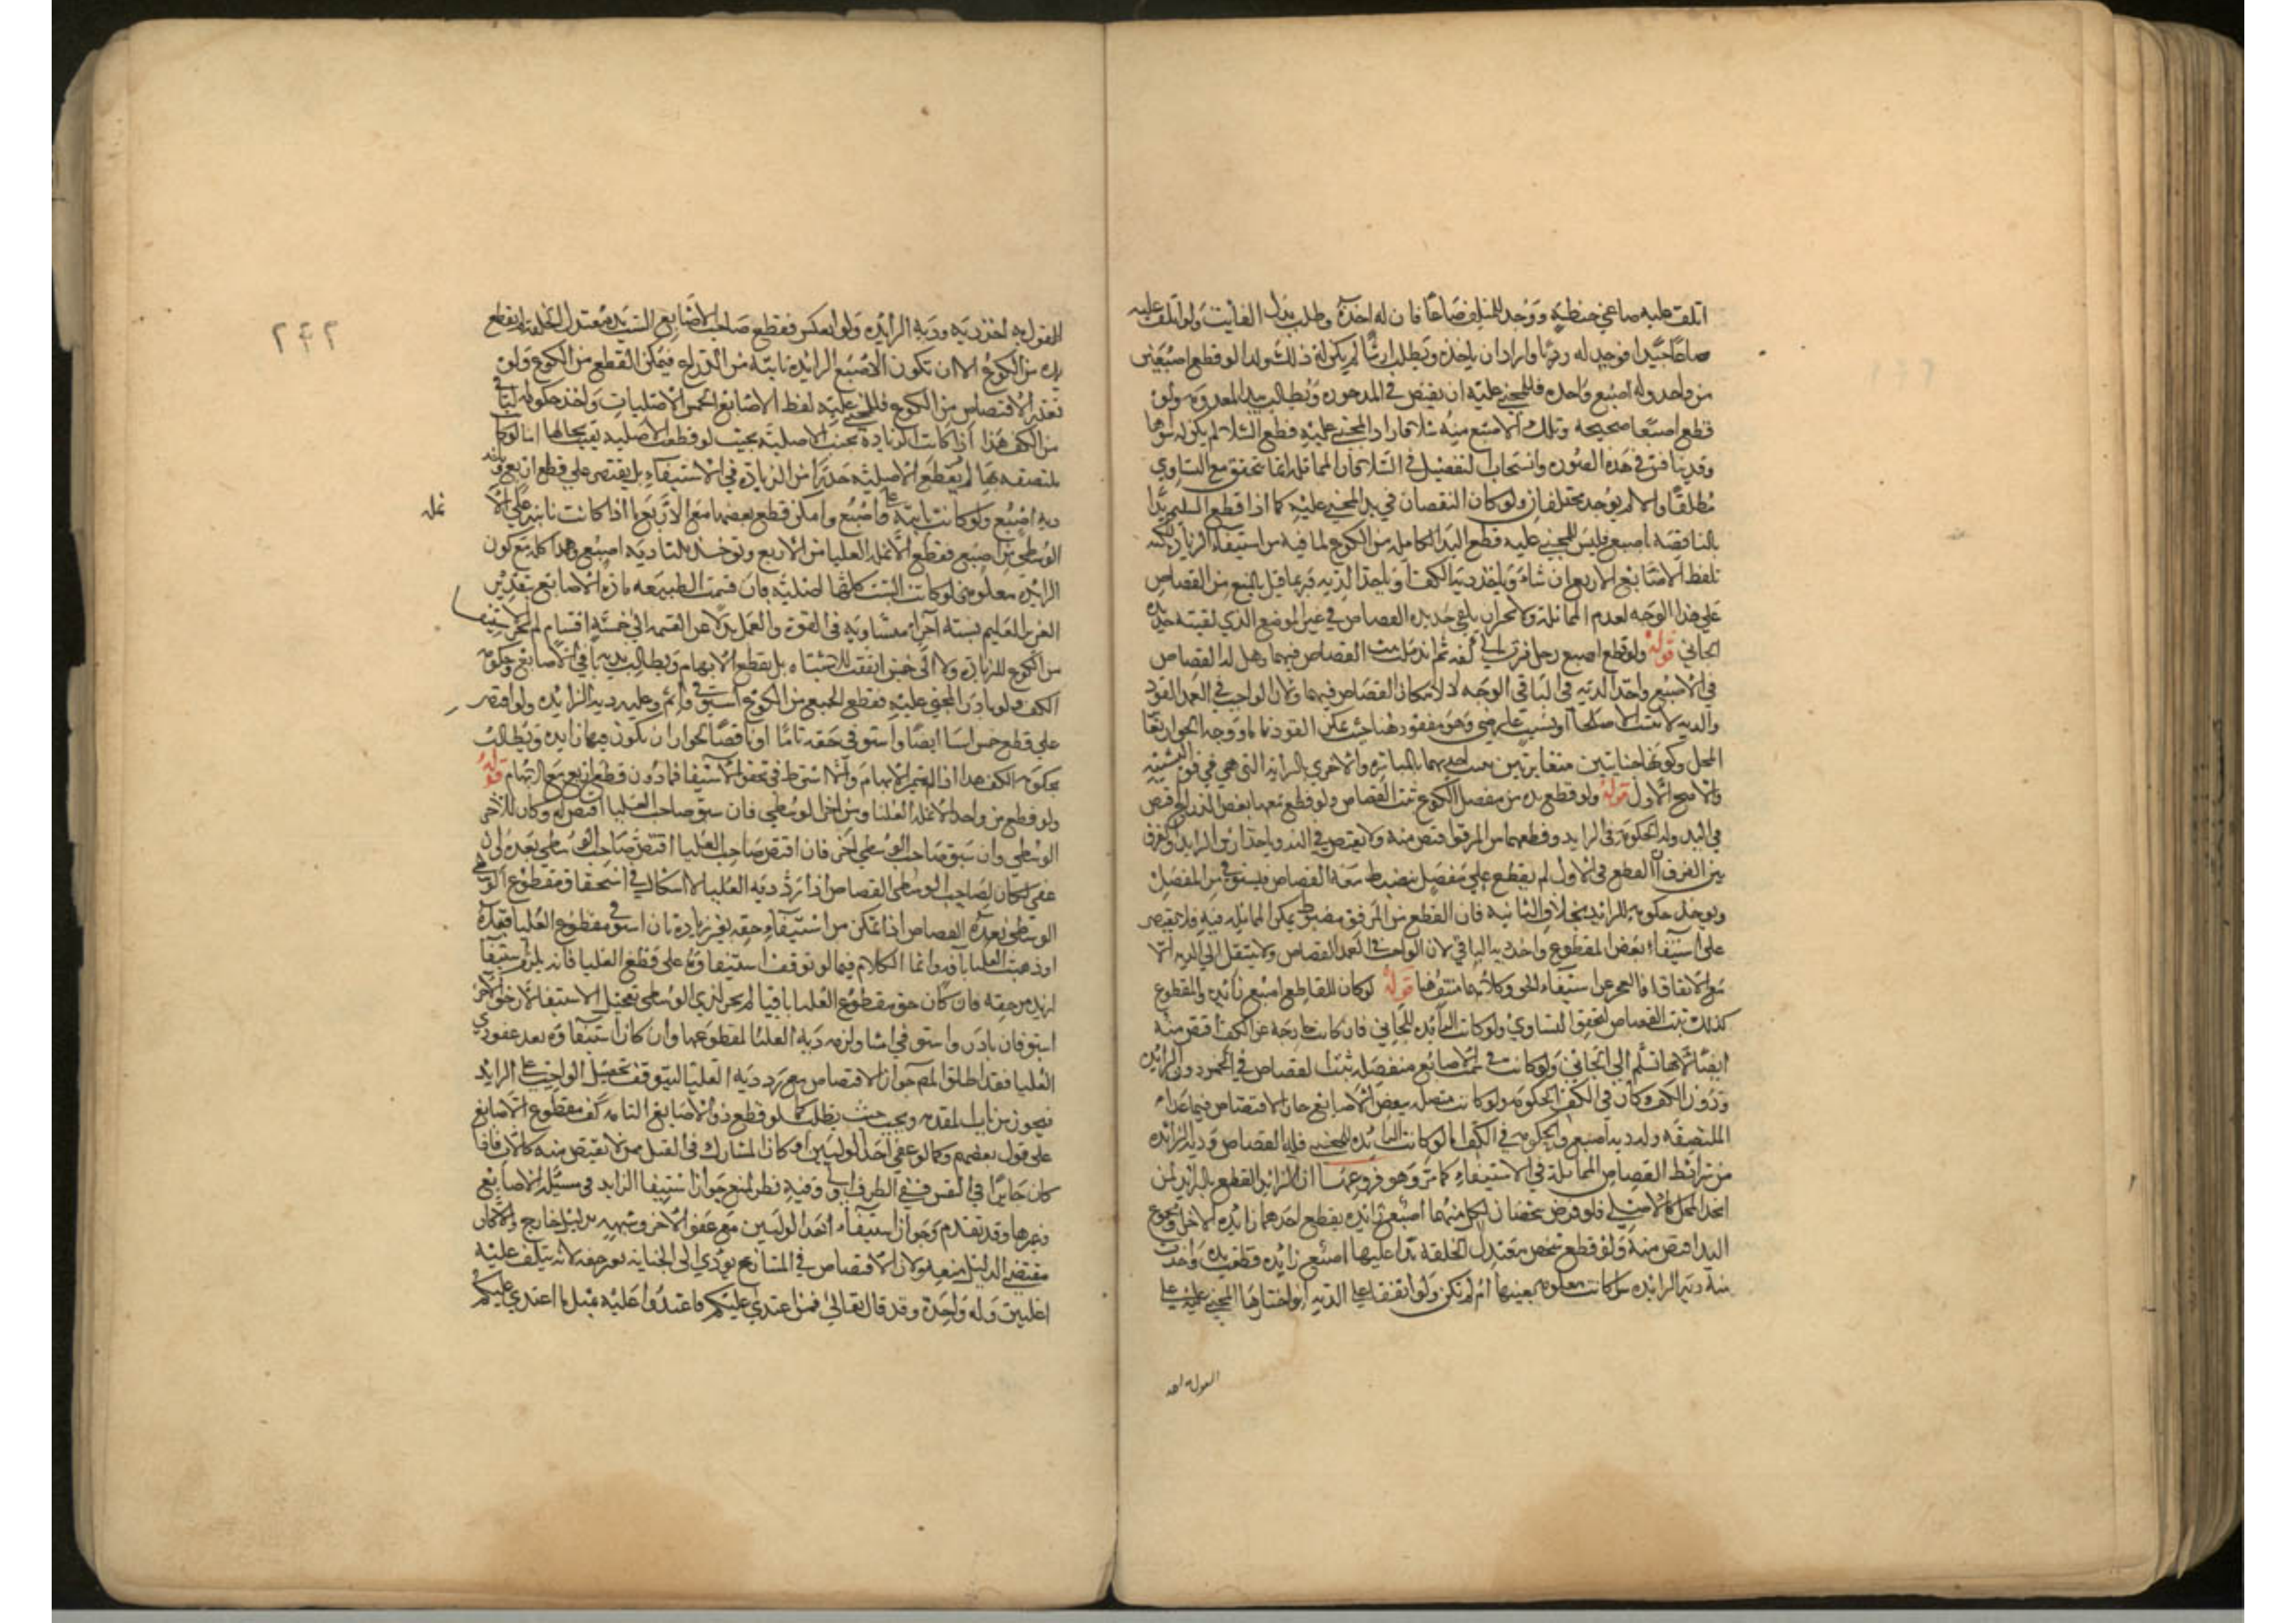 اتلف عليه صاعي حنطة ووجد للمتلف صاعا فان له اخذه وطلب بدل الفايت ولو اتلف عليه
صاعا جيدا فوجد له رديا واراد ان ياخذه ويطلب ارشا لم يكن له ذلك ولذا لو قطع اصبعين
من واحد وله اصبع واحده فللمجني عليه ان يقتص في الموجوده ويطالب بدية المعدومه ولو
قطع اصبعا صحيحة وتلك الاصبع منه شلا فاراد المجني عليه قطع الشلا لم يكن له سواها
وقد يناقش في هذه الصوره وانسحاب التفصيل في الشلا فان المماثله انما تتحقق مع التساوي
مطلقا والا لم يوجد مختلفان ولو كان النقصان في يد المجني عليه كما اذا قطع السليم يدا
بالناقصه اصبع فليس للمجني عليه قطع اليد الكامله من الكوع لما فيه من استيفاء الزيادة لكنه
تلفظ الاصابع الاربع ان شاء وياخذ دية الكف او ياخذ الدية فربما قيل بالمنع من القصاص
على هذا الوجه لعدم المماثلة ولانجران يلقى حديده القصاص في غير الموضع الذي لقيته حديدة
الجاني قوله ولو قطع اصبع رجل فسرت الى كفه ثم اندملت ثبت القصاص فيهما وهل له القصاص
في الاصبع واخذ الدية في الباقي الوجه لا لامكان القصاص فيهما ولان الواجب في العمد القود
والدية لا تثبت الا صلحا او بسبب عارضي وهو مفقود هنا حيث يمكن القود
المحل وكونهما جنايتين متغايرتين احديهما بالمباشرة والاخرى بالسراية التي هي في قوة
والاصح الاول قوله ولو قطع يده من مفصل الكوع ثبت القصاص ولو قطع معها بعض الذراع اقتص
في اليد وله الحكومة في الزايد ولو قطعهما من المرفق اقتص منه ولا يقتص في اليد وياخذ ارش الزايد والفرق
بين الفرق ان القطع في الاول لم يقطع على مفصل ينضبط معه القصاص فيستوفي من المفصل
ويوخذ حكومة للزايد بخلاف الثانيه فان القطع من المرفق مضبوط يمكن المماثله فيه فلا يقتصر
على استيفاء بعض المقطوع واخذ دية الباقي لان الواجب في العمد القصاص ولا ينتقل الى الدية الا
مع الاتفاق او العجز عن استيفاء الحق وكلاهما منتف هنا قوله لو كان للقاطع اصبع زائده وللمقطوع
كذلك ثبت القصاص لتحقق التساوي ولو كانت الزائده للجاني فان كانت خارجة عن الكف اقتص منه
ايضا لانها تسلم الى الجاني ولو كانت في سمت الاصابع منفصلة ثبت القصاص في الخمس دون الزايده
ودون الكف وكان في الكف الحكومه ولو كانت متصله ببعض الاصابع جاز الاقتصاص فيما عدا
الملتصقه وله دية اصبع والحكومه في الكف اما لو كانت الزائده للمجني فله القصاص ودية الزائده
من شرائط القصاص المماثلة في الاستيفاء كما مر وهو فروع منها ان الزائد القطع بالزائد ان
اتحد المحل كالاصلي فلو فرض شخصان لكل منهما اصبع زائده يقطع احدهما زائده الاخر او مجموع
اليد اقتص منه ولو قطع شخص معتدل الخلقة يدا عليها اصبع زائده قطعت يده واخذت
منه دية الزائده سوا كانت معلومه بعينها ام لم تكن ولو اتفقا على الدية او اختارها المجني عليه على
القول به اخذ
القول به اخذ دية ودية الزايده ولو انعكس فقطع صاحب الاصابع الست يد معتدل الخلقة لم يقطع
يده من الكوع الا ان تكون الاصبع الزائده نابتة من الذراع فيمكن القطع من الكوع ولو
تعذر الاقتصاص من الكوع فللمجني عليه لفظ الاصابع الخمس الاصليات واخذ حكومة
من الكف هذا اذا كانت الزيادة بجنب الاصلية بحيث لو قطعت الاصلية بقيت بحالها اما لو كانت
ملتصقه بها لم يقطع الاصلية حذرا من الزيادة في الاستيفاء بل يقتصر على قطع اربع وياخذ
دية اصبع ولو كانت نابتة على اصبع وامكن قطع بعضها مع الاربع كما اذا كانت نابتة على الانملة
الوسطي من اصبع فقطع الانملة العليا مع الاربع وتوخذ ثلثا دية اصبع وهذا كله مع كون
الزايده معلومة لو كانت الست كلها اصلية بان قسمت الطبيعه ماده الاصابع بتقدير
العزيز العليم بستة اجزاء متساوية في القوة والعمل بدلا عن القسمه الى خمسة اقسام لم يجز الاستيفا
من الكوع للزيادة ولا الى خمس اتفقت للاشتباه بل يقطع الابهام ويطالب بدية باقي الاصابع وحكومة
الكف ولو بادر المجني عليه فقطع الجميع من الكوع استوفى واثم وعليه دية الزايده ولو اقتصر
على قطع خمس اساء ايضا واستوفى حقه تاما او ناقصا لجواز ان يكون منها زايده ويطالب
بحكومة الكف هذا اذا لم يتميز الابهام والا اشترط في تحقق الاستيفا فما دون قطع اربع مع الابهام قوله
ولو قطع من واحد الانملة العليا ومن اخر الوسطي فان سبق صاحب العليا اقتص له وكان للاخر
الوسطي وان سبق صاحب الوسطي اخر فان اقتص صاحب العليا اقتص صاحب الوسطي بعده وان
عفى كان لصاحب الوسطي القصاص اذا رد دية العليا لا اشكال في استحقاق مقطوع الوسطي
الوسطي بعده القصاص اذا تمكن من استيفاء حقه بغير زيادة بان استوفى مقطوع العليا قبله
او ذهبت العليا بافه وانما الكلام فيما لو توقف استيفاؤه على قطع العليا فانه يلزم استيفا
ازيد من حقه فان كان حق مقطوع العليا باقيا لم يجز لذي الوسطي تعجيل الاستيفا لان حق الاخر
اسبق فان بادر واستوفى اسا ولزمه دية العليا لمقطوعها وان كان استيفاؤه بعد عفو ذي
العليا فقد اطلق المص جواز الاقتصاص مع رد دية العليا ليتوقف تحصيل الواجب على الزايد
فيجوز من باب المقدمه ويجب حيث يطلب كما لو قطع ذو الاصابع التامه كف مقطوع الاصابع
على قول بعضهم وكما لو عفى احد الوليين او كان المشارك في القتل ممن لا يقتص منه كالاب فاذا
كان جايزا في النفس ففي الطرف اولى وفيه نظر لمنع جواز استيفا الزايد في مسئلة الاصابع
وغيرها وقد تقدم وجواز استيفاء احد الوليين مع عفو الاخر وشبهه بدليل خارج والا كان
مقتضى الدليل منعه ولان الاقتصاص في المتنازع يودي الى الجناية بغير حقه لانه يتلف عليه
اغلبين وله واحدة وقد قال تعالى فمن اعتدى عليكم فاعتدوا عليه بمثل ما اعتدى عليكم